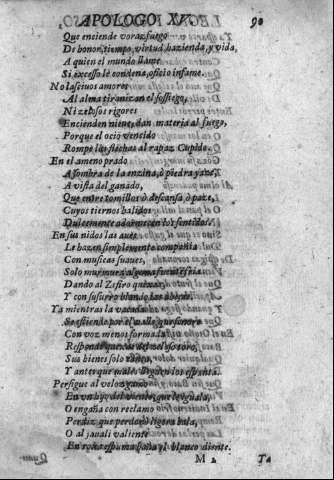 APOLOGO XV. 90
Que enciende voraz fuego
De honor, tiempo, virtud, hazienda, y vida,
A quien el mundo llama
Si excesso le condena, oficio infame.
No lasciuos amores
Al alma tiranizan el sossiego,
Ni zelosos rigores
Encienden nieue, dan materia al fuego,
Porque el ocio vencido
Rompe las flechas al rapaz Cupido.
En el ameno prado
A sombra de la enzina, ò piedra
A vista del ganado,
Que entre tomillos ò descansa, ò pace,
Cuyos tiernos balidos
Dulcemente adormecen los sentidos.
En sus nidos las aues
Le hazen simplemente compañia
Con musicas suaues,
Solo murmura alguna fuente fria
Dando al Zefiro quexas
Y con susurro blando las abejas.
Ya mientras la vacada
Se estiende por el valle
Con voz menos formada
Responde
Sus bienes solo
Y antes que males llegan los espanta.
Persigue al veloz gamo
En vn hijo del viento que le yguala,
O engaña con reclamo
Perdiz que perdio ligera bala,
O al jauali valiente
En roxa espuma baña el blanco diente.
M 2 Ta